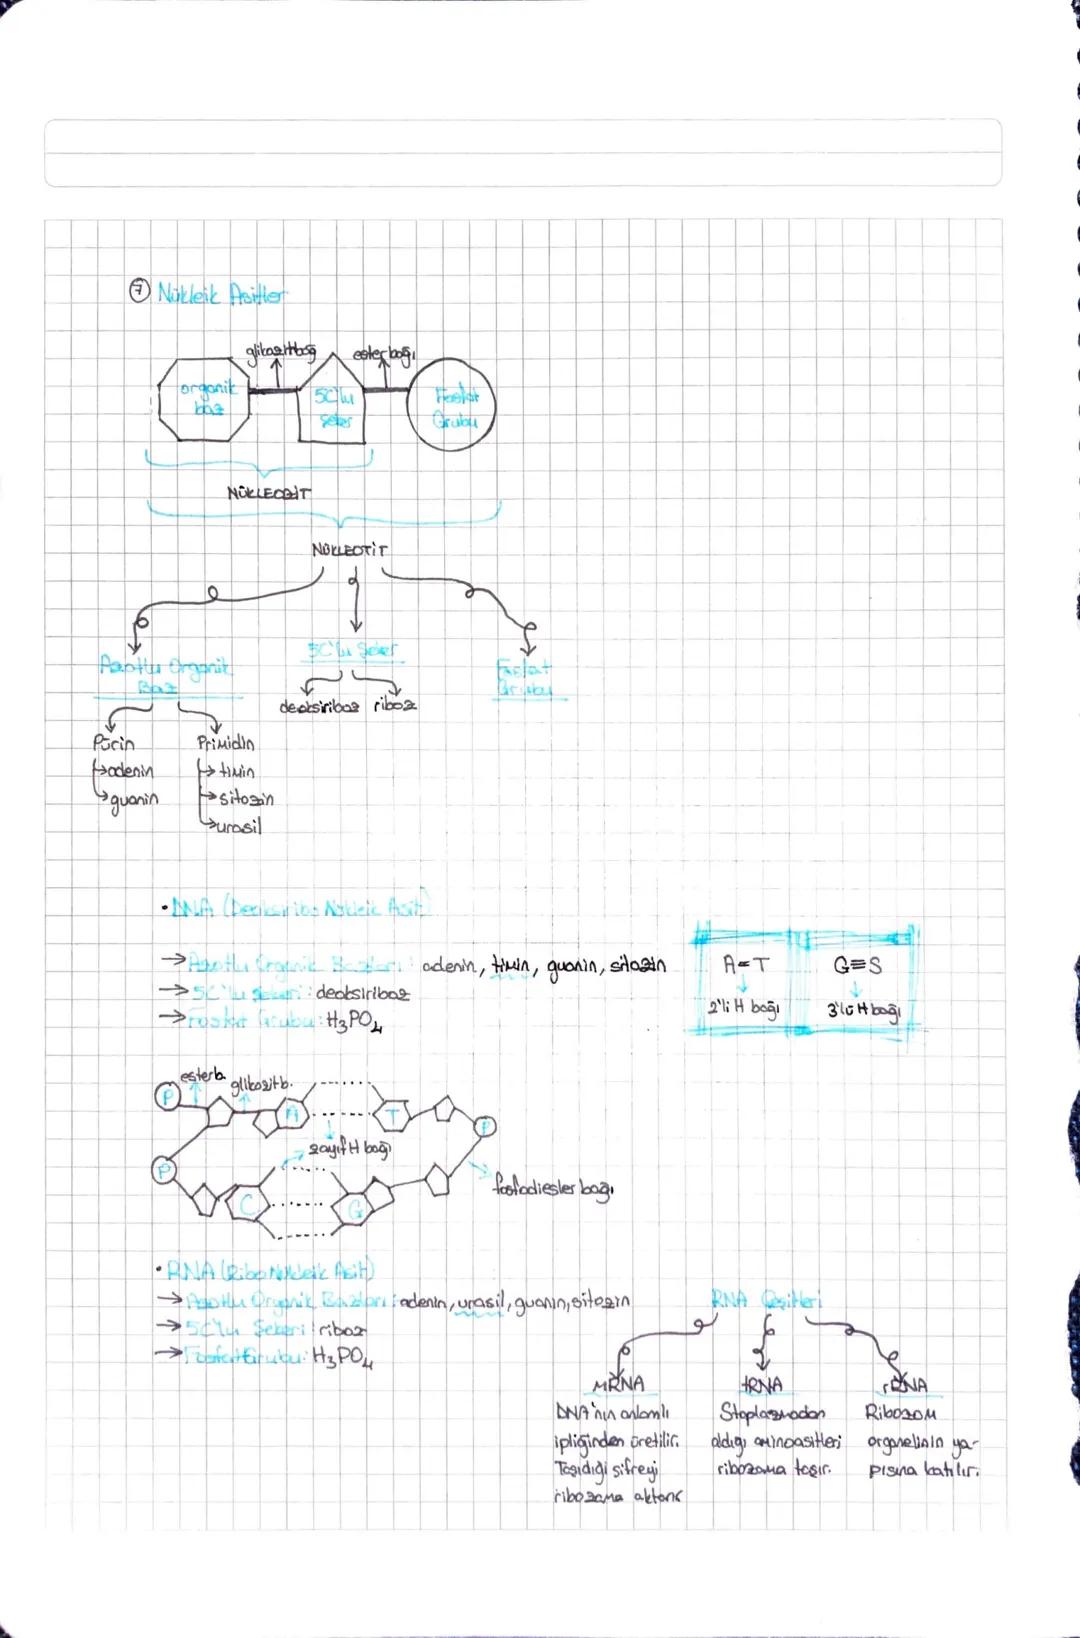 7 Nükleik Asitler
glikozit bağ
ester bağı
organik
baz
5C'lu
Şeker
Fosfat
Grubu
NÜKLEOZİT
NÜKLEOTİT
Azotlu Organik
Baz
5C'lu Şeker
Fosfat
Grubu
deoksiriboz riboz
Pürin
adenin
guanin
Primidin
timin
sitozin
urasil
• DNA (Deoksiribo Nükleik Asit)
→ Azotlu Organik Bazları: adenin, timin, guanin, sitozin
→ 5C'lu Şekeri: deoksiriboz
→ Fosfat Grubu: H3PO4
A=T
2'li H bağı
G≡S
3'lü H bağı
ester b.
glikozit b.
P
A
T
P
zayıf H bağı
P
C
G
fosfodiester bağı
• RNA (Ribo Nükleik Asit)
→ Azotlu Organik Bazları: adenin, urasil, guanin, sitozin
→ 5C'lu Şekeri: riboz
→ Fosfat Grubu: H3PO4
RNA Çeşitleri
mRNA
DNA'nın anlamlı
ipliğinden üretilir.
Taşıdığı şifreyi
ribozoma aktarır
tRNA
Stoplazmadan
aldığı aminoasitleri
ribozoma taşır.
rRNA
Ribozom
organelinin ya-
pısına katılır.